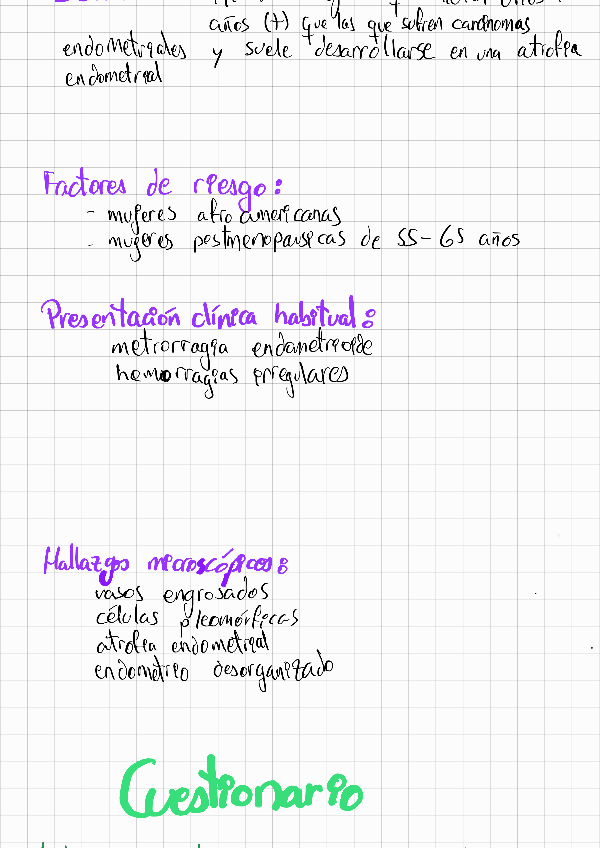 años (+) que las que sufren carcinomas
endometriales y suele desarrollarse en una atrofia
endometrial
Factores de riesgo:
- mujeres afroamericanas
- mujeres postmenopausicas de 55-65 años
Presentación clínica habitual:
metrorragia endometrioide
hemorragias irregulares
Hallazgos microscópicos:
vasos engrosados
células pleomórficas
atrofia endometrial
endometrio desorganizado
Cuestionario